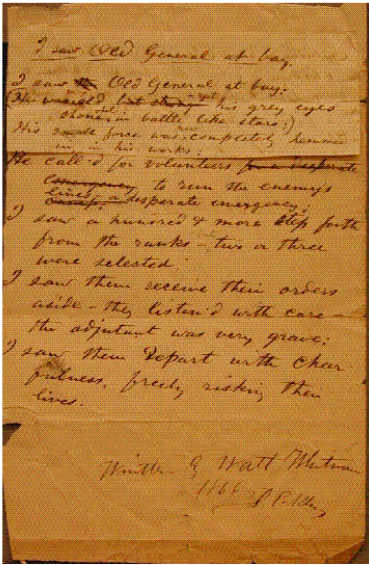 I saw Old General at bay.
I saw the Old General at bay;
(He was old, but strong yet his grey eyes
shone in battle like stars;)
His small force was now completely hemmed
in in his works;
He call'd for volunteers for a desperate
emergency to run the enemy's
lines, a desperate emergency;
I saw a hundred & more step forth
from the ranks – but two or three
were selected;
I saw them receive their orders
aside – they listen'd with care –
the adjutant was very grave;
I saw them depart with chear
fulness, freely risking their
lives.
Written by Walt Whitman